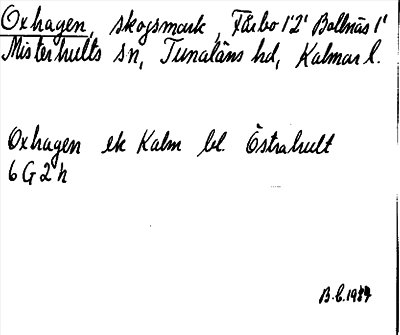 Oxhagen, skogsmark, Fårbo 1'2' Bollnäs 1'
Misterhults sn, Tunaläns hd, Kalmar l.
Oxhagen ek Kalm bl. Östrahult
6 G 2 h
B.C. 1977